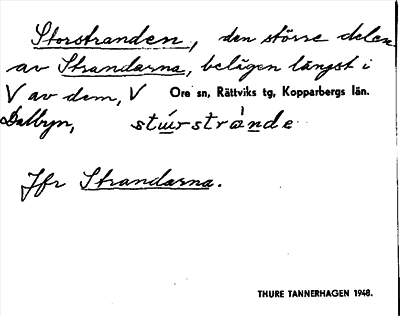 Storstranden, den större delen
av Strandarna, belägen längst i
V av dem, V Ore sn, Rättviks tg, Kopparbergs län.
Dalbyn, stúrstrànde
Jfr Strandarna.
THURE TANNERHAGEN 1948.